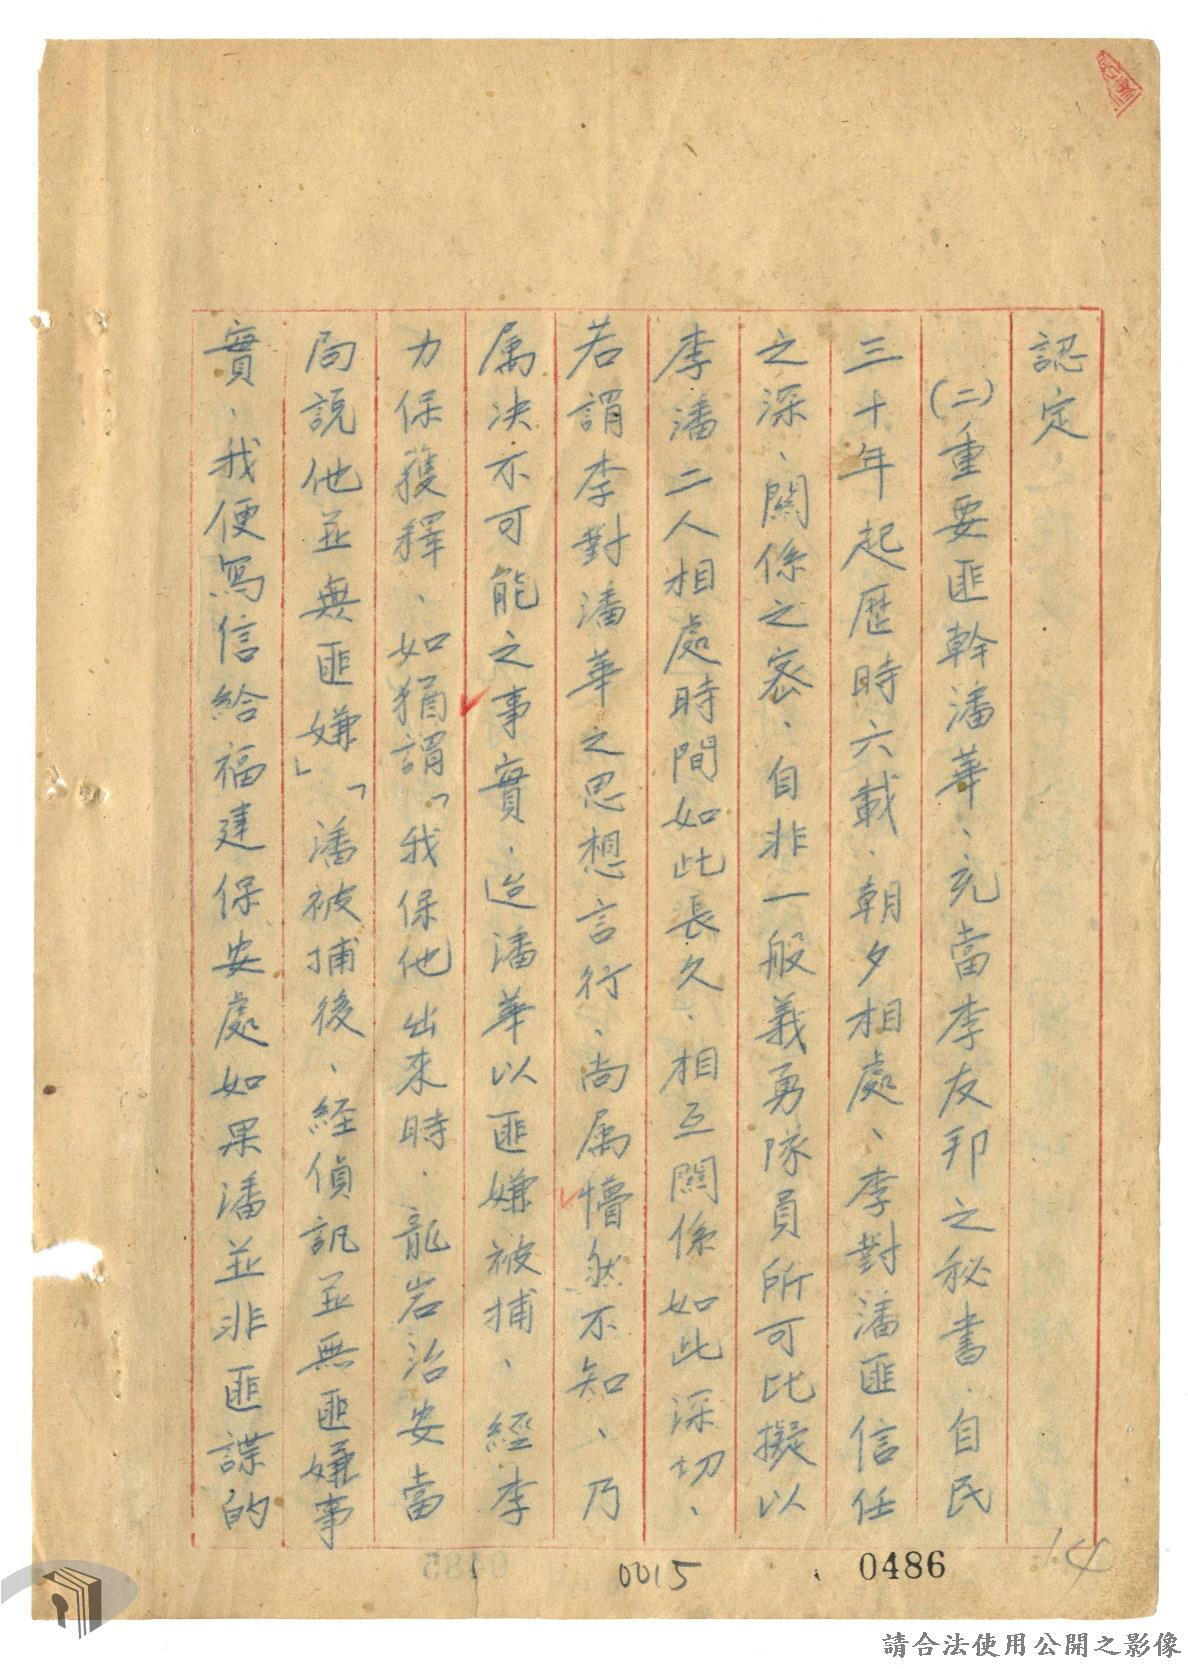 認定
(二)重要匪幹潘華、充當李友邦之秘書、自民
三十年起歷時六載、朝夕相處、李對潘匪信任
之深、關係之密、自非一般義勇隊員所可比擬以
李潘二人相處時間如此長久、相互關係如此深切、
若謂李對潘華之思想言行、尚屬懵然不知、乃
屬决不可能之事實、迨潘華以匪嫌被捕、經李
力保獲釋、如猶謂「我保他出來時、龍岩治安當
局說他並無匪嫌」「潘被捕後、経偵訊並無匪嫌事
實、我便寫信給福建保安處如果潘並非匪諜的
14
0486
0015
0485
請合法使用公開之影像